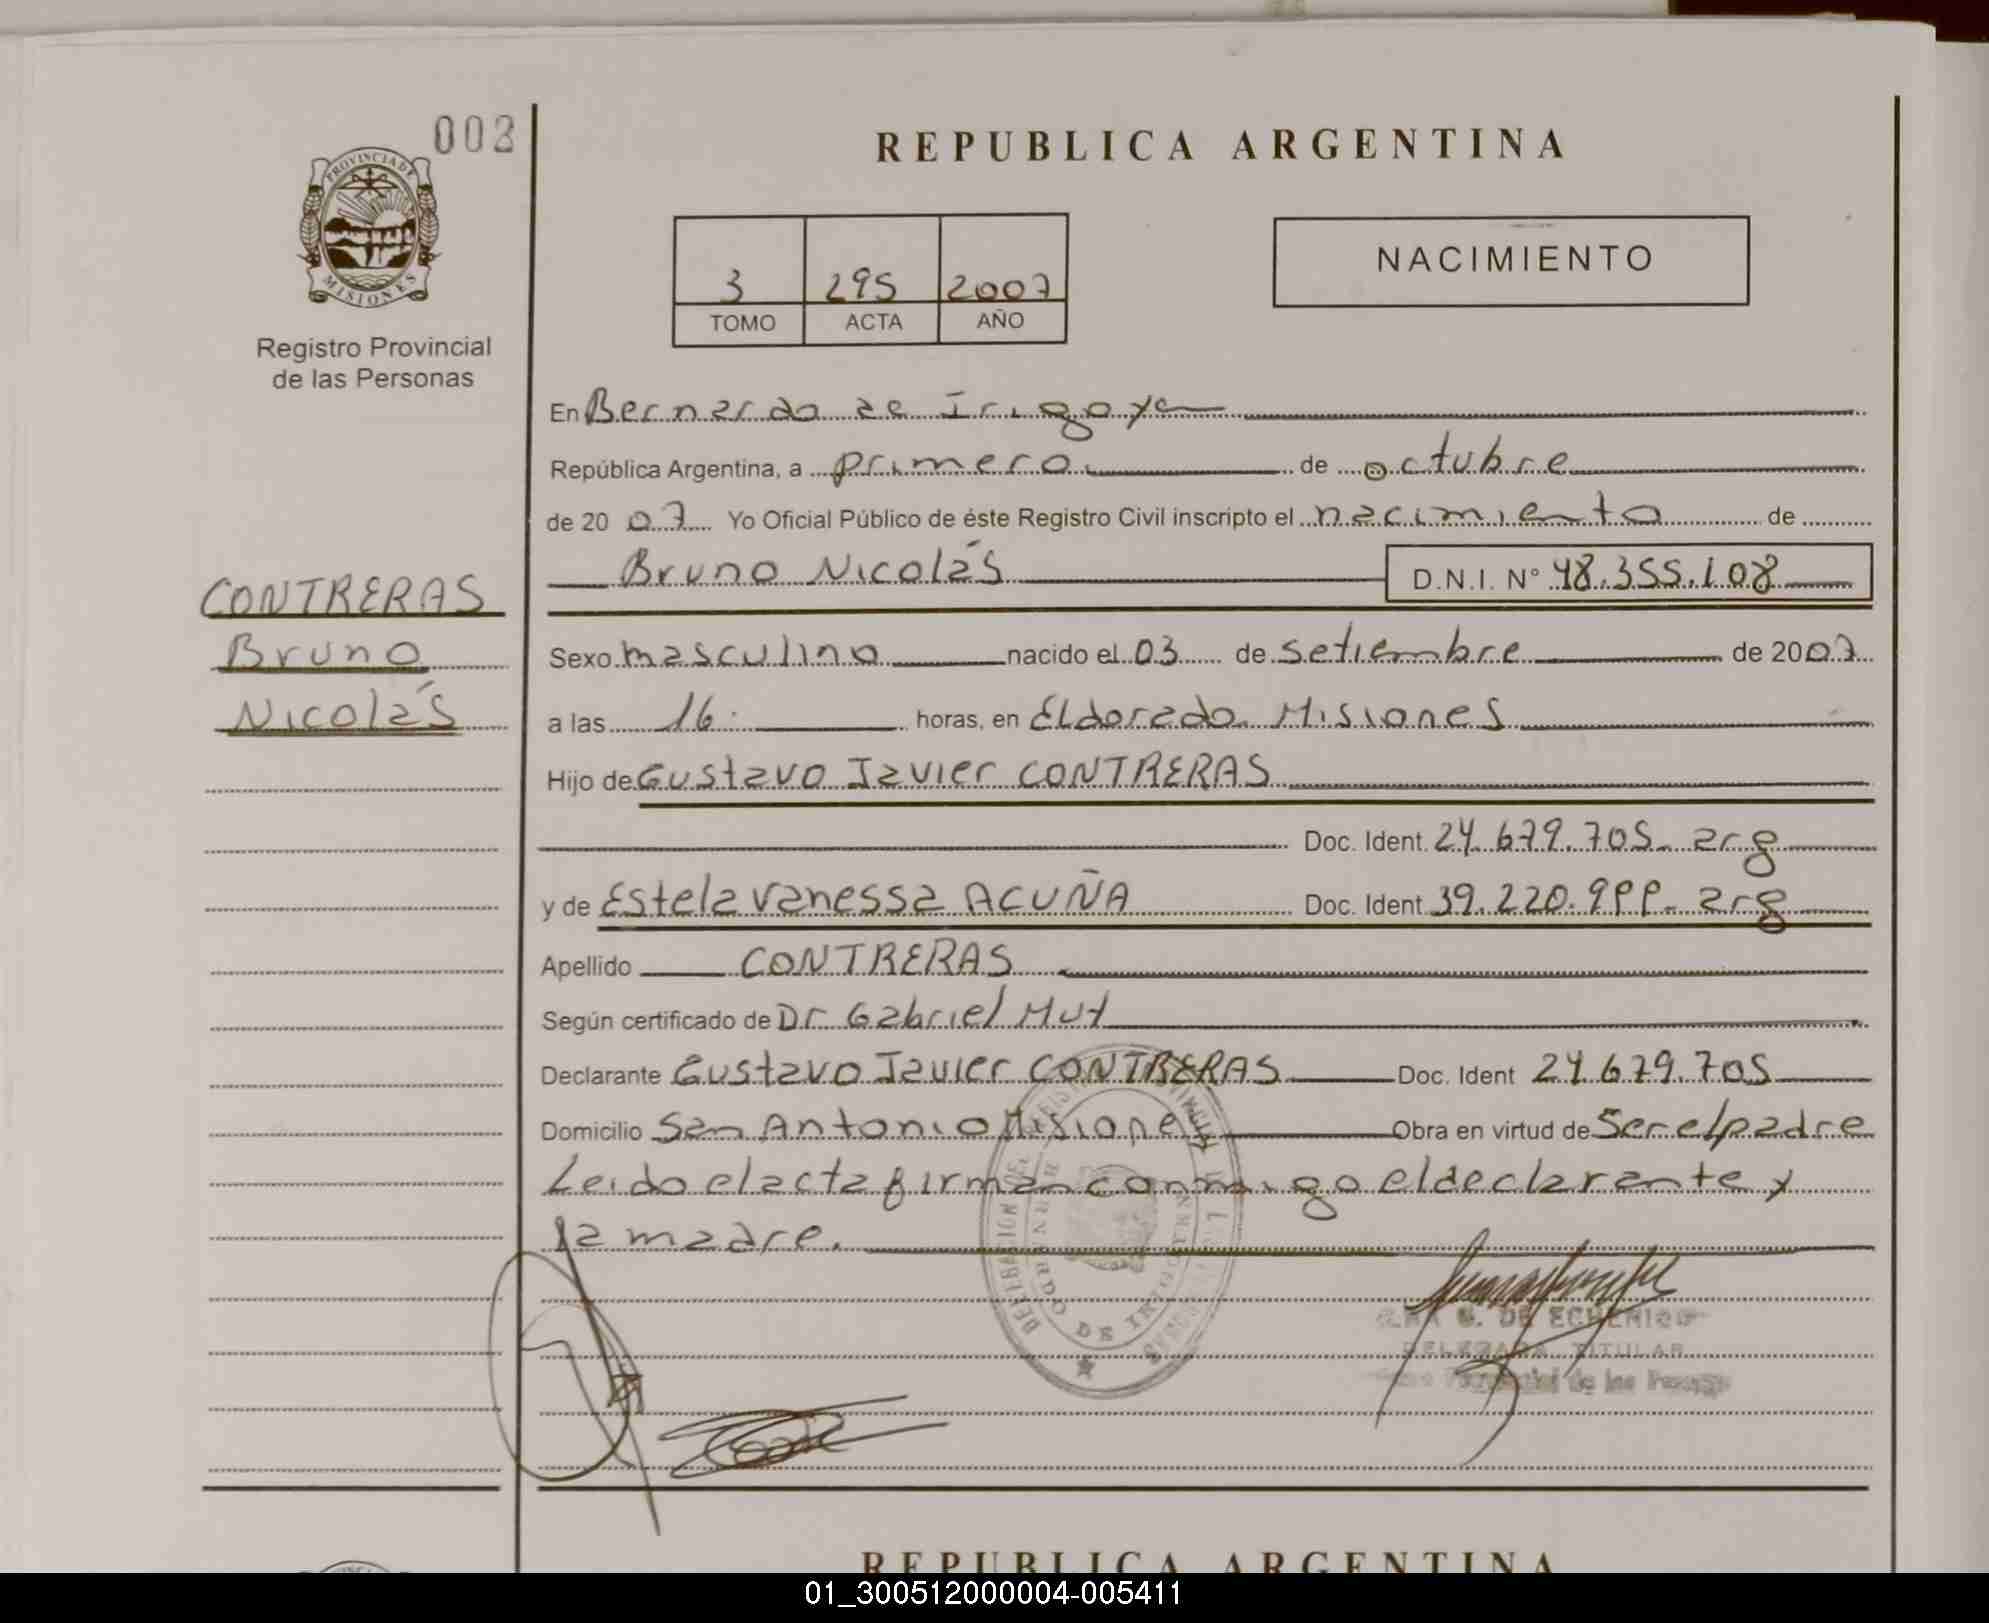 003
PROVINCIA DE
MISIONES
Registro Provincial
de las Personas
REPUBLICA ARGENTINA
3 295 2007
TOMO ACTA AÑO
NACIMIENTO
En Bernardo de Irigoyen
República Argentina, a primero de octubre
de 20 07 Yo Oficial Público de éste Registro Civil inscripto el nacimiento de
Bruno Nicolás D.N.I. N° 48.355.108
CONTRERAS
Bruno
Nicolás
Sexo masculino nacido el 03 de setiembre de 2007
a las 16. horas, en Eldorado Misiones
Hijo de Gustavo Javier CONTRERAS
Doc. Ident. 24.679.705 arg
y de Estela Vanessa ACUÑA Doc. Ident. 39.220.999 arg
Apellido CONTRERAS
Según certificado de Dr Gabriel Mut
Declarante Gustavo Javier CONTRERAS Doc. Ident 24.679.705
Domicilio San Antonio Misiones Obra en virtud de Ser el padre
Leido el acta firman conmigo el declarante y
la madre.
DE ECHENIQUE
DELEGADA TITULAR
Provincial de las Personas
REPUBLICA ARGENTINA
01_300512000004-005411